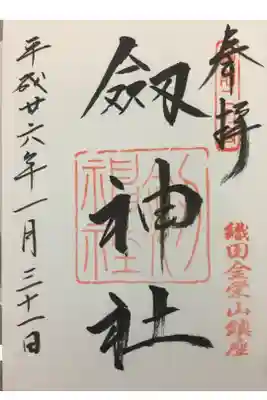 奉拝
織田金栄山鎮座
劔神社
平成廿六年一月三十一日